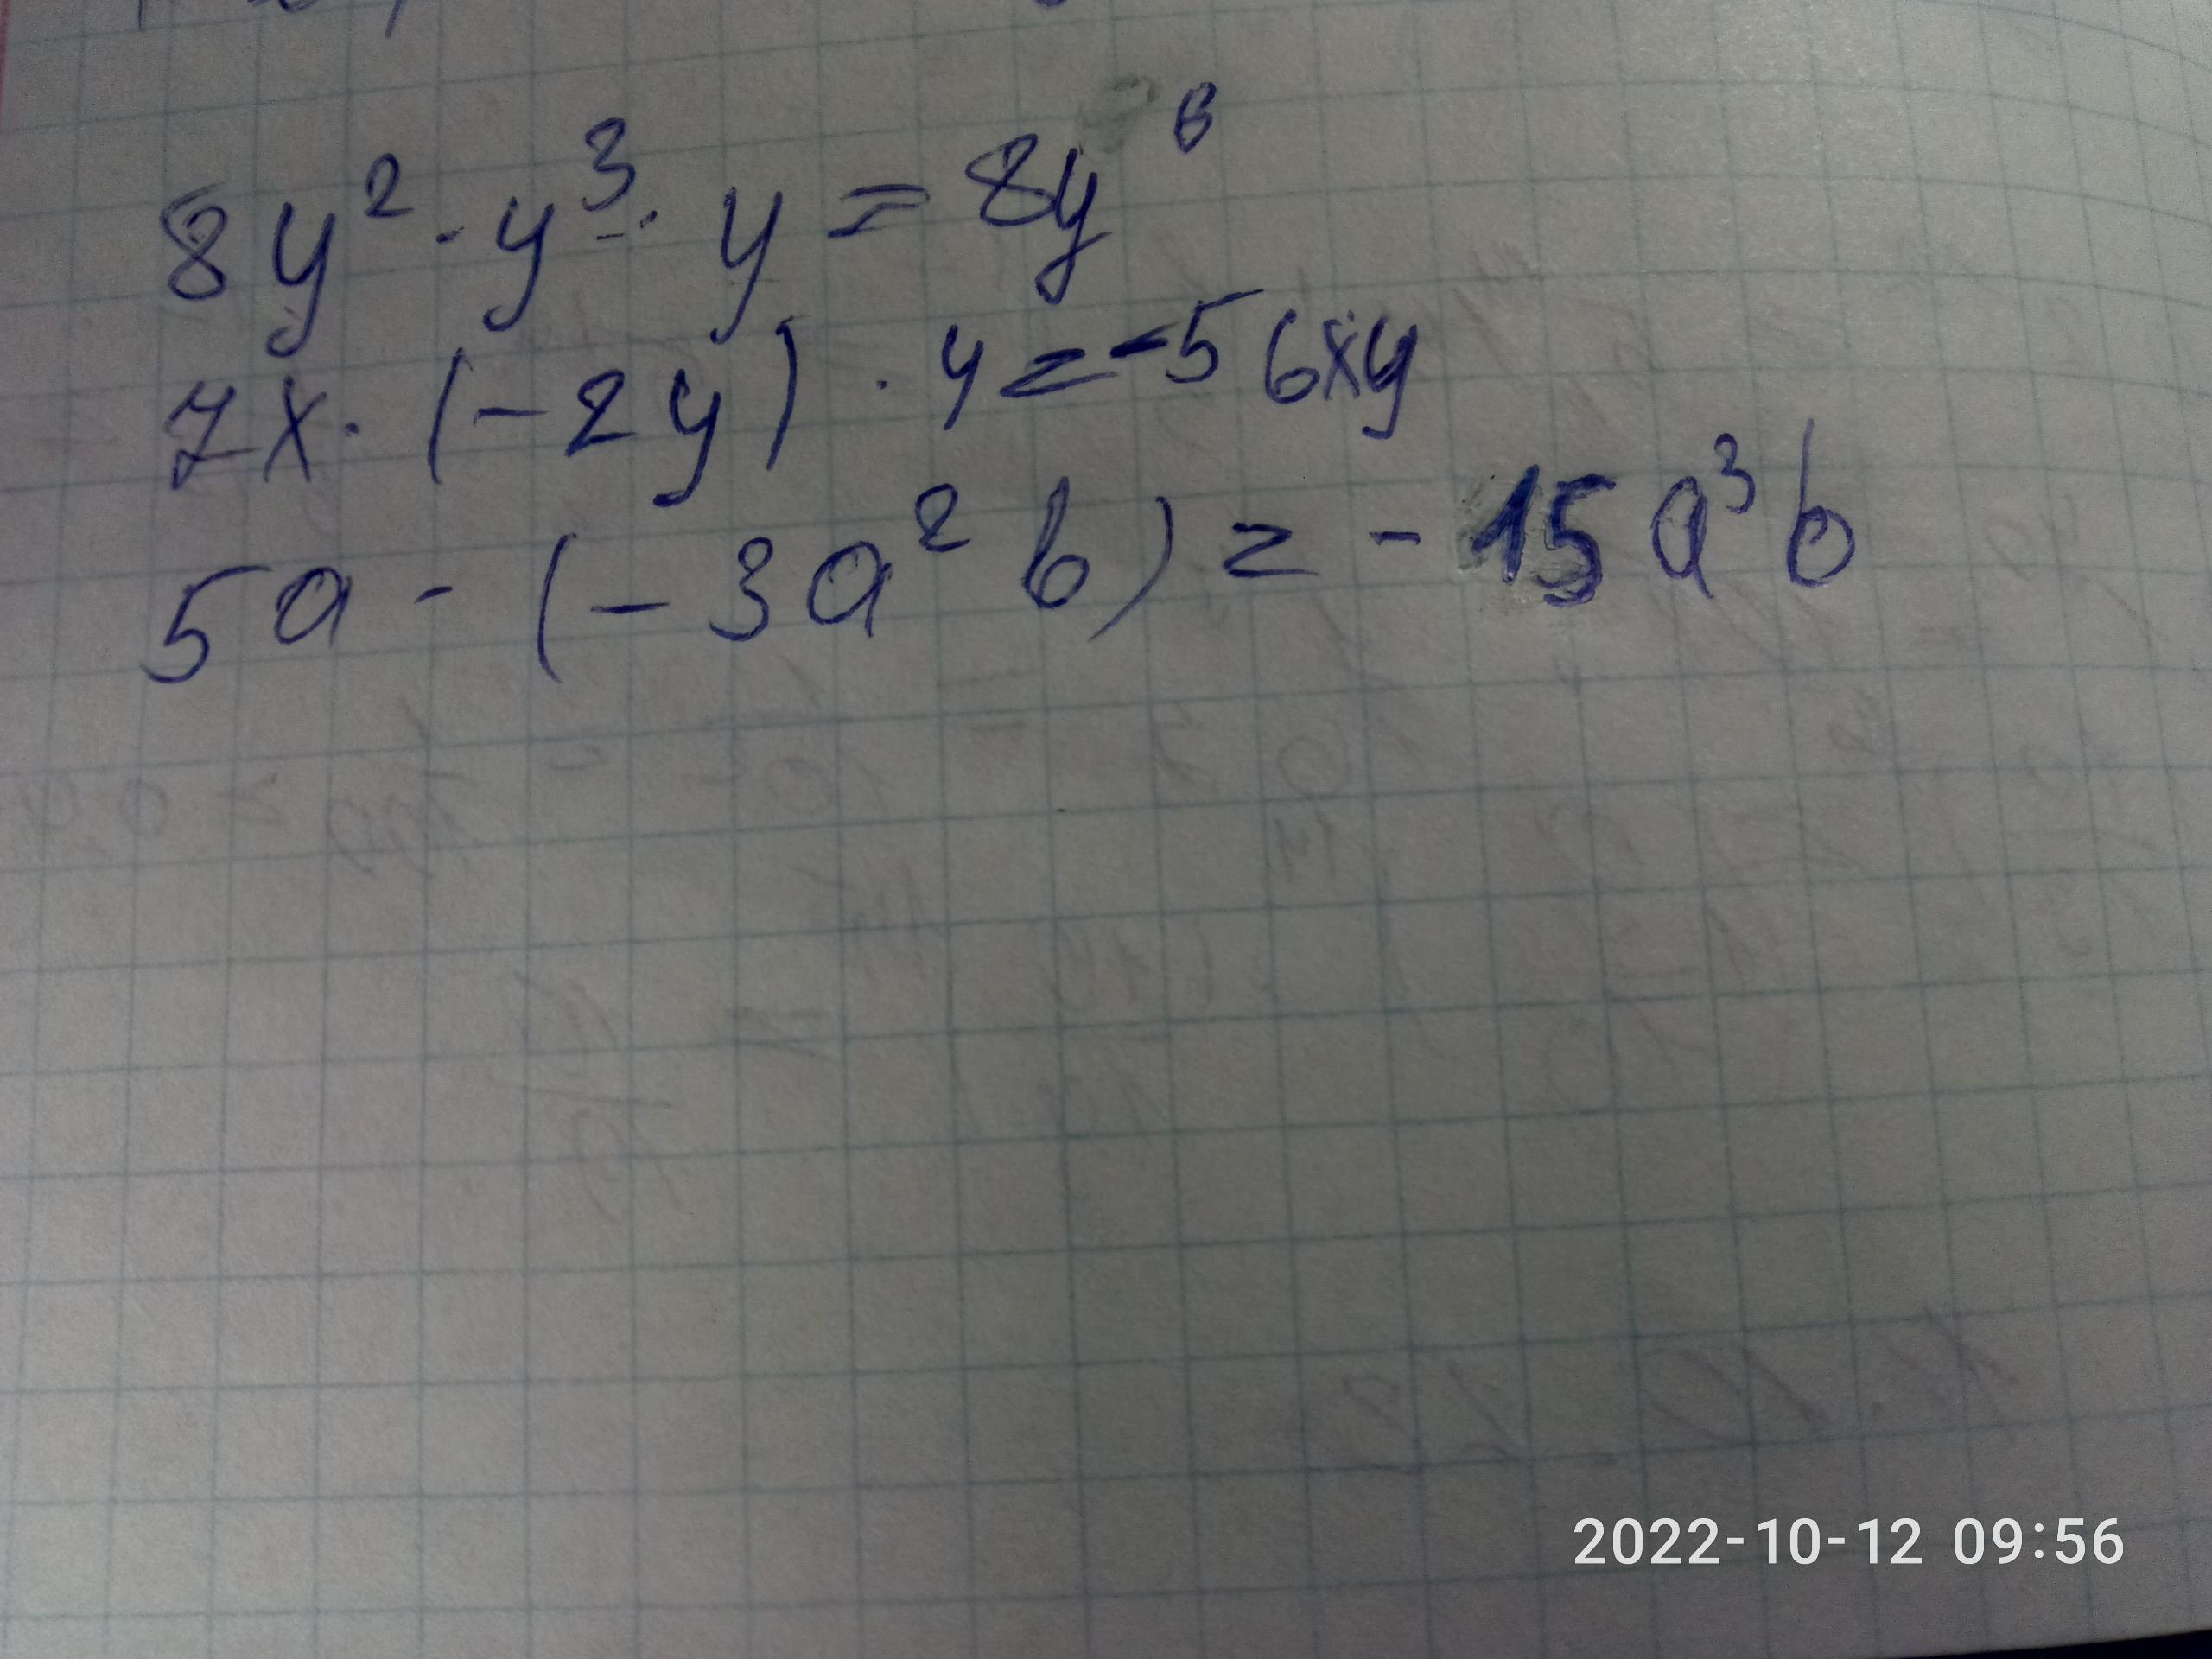 8y² · y³ · y = 8y⁶
7x · (-2y) · 4 = -56xy
5a · (-3a²b) = -15a³b
2022-10-12 09:56